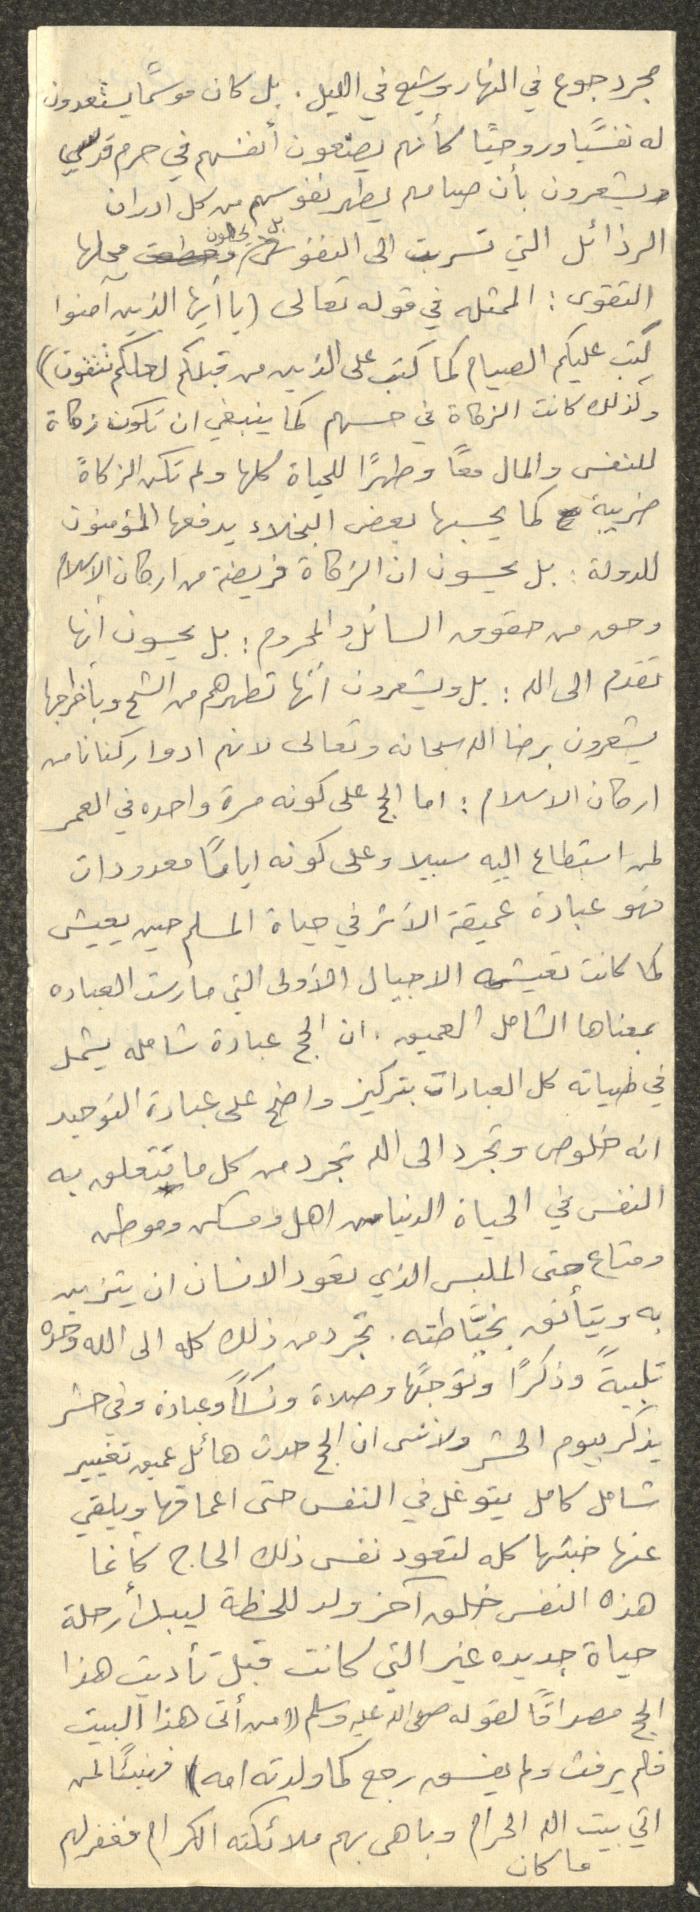 مجرد جوع في النهار وشبع في الليل . بل كان موسمًا يستعدون
له نفسيًا وروحيًا كأنهم يضعون أنفسهم في حرم قدسي
ويشعرون بأن صيامهم يطهر نفوسهم من كل ادران
الرذائل التي تسربت الى النفوس بل يحلون محلها
التقوى : الممثله في قوله تعالى (يا أيها الذين آمنوا
كُتب عليكم الصيام كما كتب على الذين من قبلكم لعلكم تتقون)
وكذلك كانت الزكاة في حسهم كما ينبغي ان تكون زكاة
للنفس والمال معًا وطهرًا للحياة كلها ولم تكن الزكاة
ضريبة كما يحسبها بعض البخلاء يدفعها المؤمنون
للدولة : بل يحسون ان الزكاة فريضة من اركان الاسلام
وحق من حقوق السائل والمحروم : بل يحسون أنها
تقدم الى الله : بل ويشعرون أنها تطهرهم من الشح وبأخراجها
يشعرون برضا الله سبحانه وتعالى لانهم ادوا ركنا من
اركان الاسلام : اما الحج على كونه مرة واحده في العمر
لمن استطاع اليه سبيلا وعلى كونه ايامًا معدودات
فهو عبادة عميقة الأثر في حياة المسلم حين يعيش
كما كانت تعيشه الاجيال الأولى التي مارست العباده
بمعناها الشامل العميق . ان الحج عبادة شامله يشمل
في طياته كل العبادات بتركيز واضح على عبادة التوحيد
انه خلوص وتجرد الى الله تجرد من كل ما تتعلق به
النفس في الحياة الدنيا من اهل ومسكن وموطن
ومتاع حتى الملبس الذي تعود الانسان ان يتزين
به ويتأنق بخيّاطته . تجرد من ذلك كله الى الله وحده
تلبيةً وذكرًا وتوجهًا وصلاة ونسكًا وعبادة وفي حشر
يذكر بيوم الحشر ولا ننسى ان الحج حدث هائل عميق تغيير
شامل كامل يتوغل في النفس حتى اعماقها ويلقي
عنها خبثها كله لتعود نفس ذلك الحاج كأنما
هذه النفس خلق آخر ولد للحظة ليبدأ رحلة
حياة جديده غير التي كانت قبل تأديت هذا
الحج مصداقًا لقوله صلى الله عليه وسلم ((من أتى هذا البيت
فلم يرفث ولم يفسق رجع كما ولدته امه)) فهنيئًا لمن
اتي بيت الله الحرام وباهى بهم ملائكته الكرام فغفر لهم
ما كان